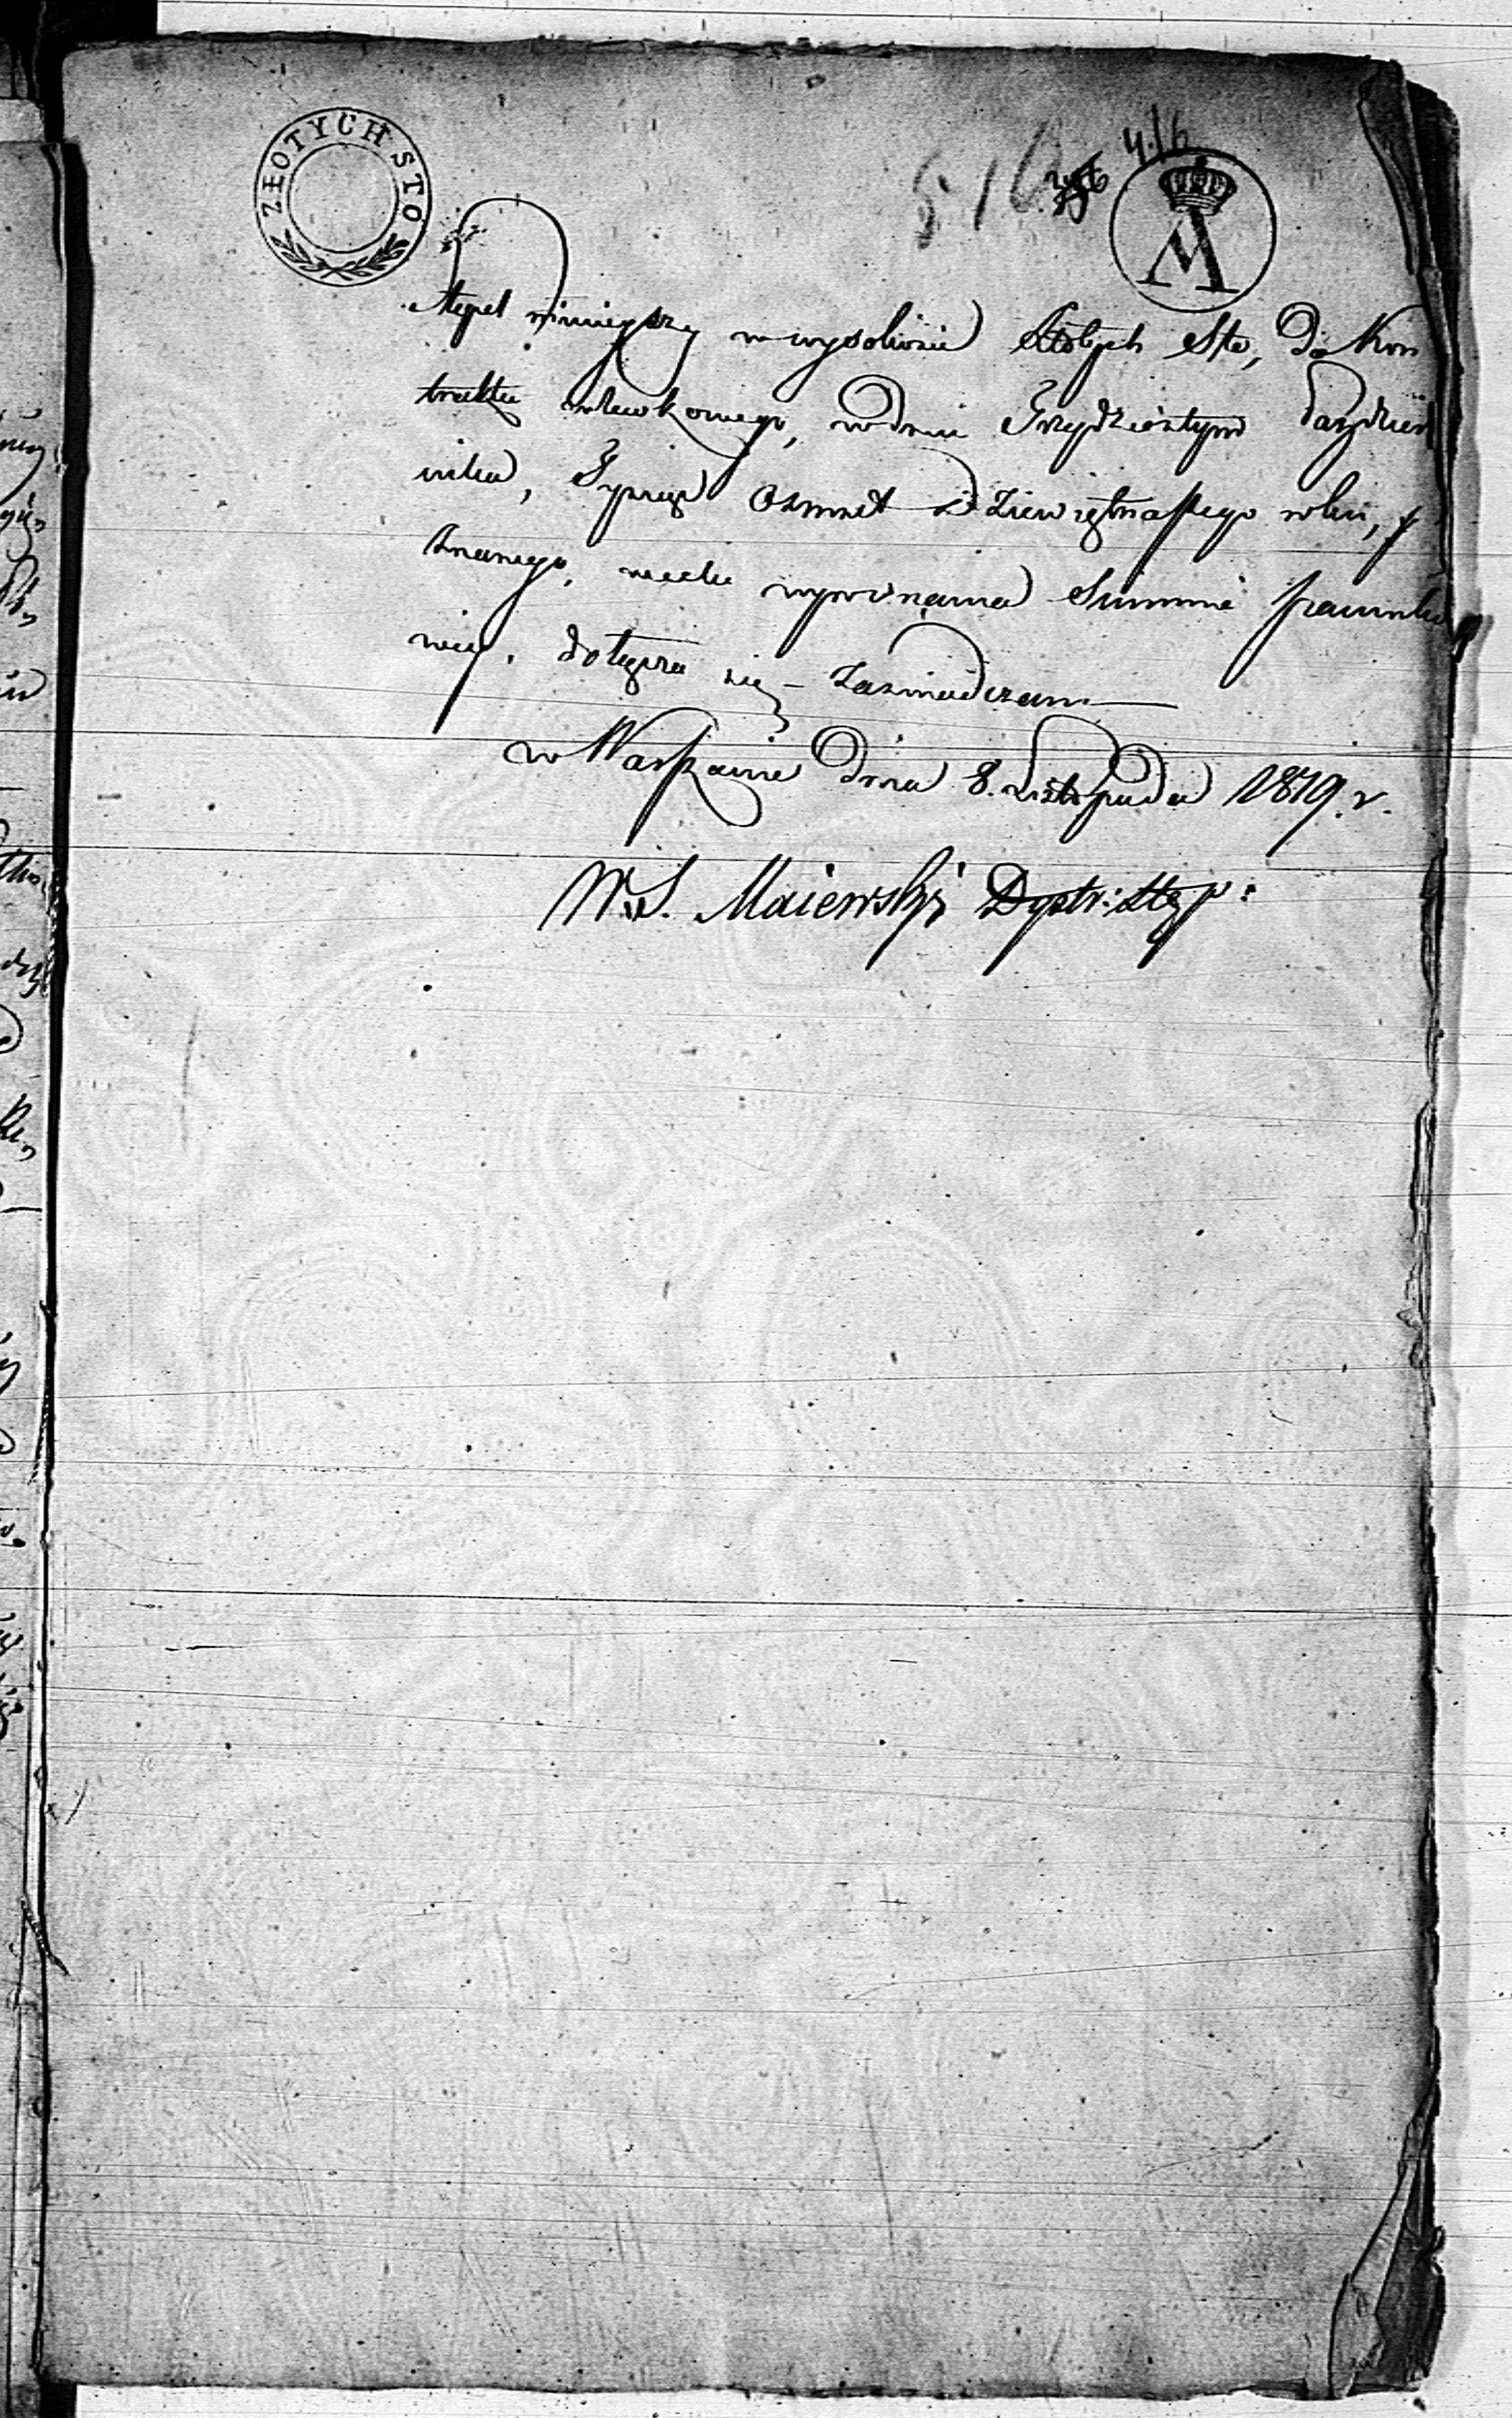 ZŁOTYCH STO
516 416
Stępel ninieyszy w wysokości Złotych Sto, do Kon
traktu wlewkowego, w dniu Trzydziestym Paździer
nika, Tysiąc Osmset Dziewiętnastego roku,
znanego, w celu wyrównania Summie szacunko
wey, dołącza się – Zaświadczam
w Warszawie Dnia 8. Listopada 1819. r.
W. S. Maiewski Dystr: Stęp: